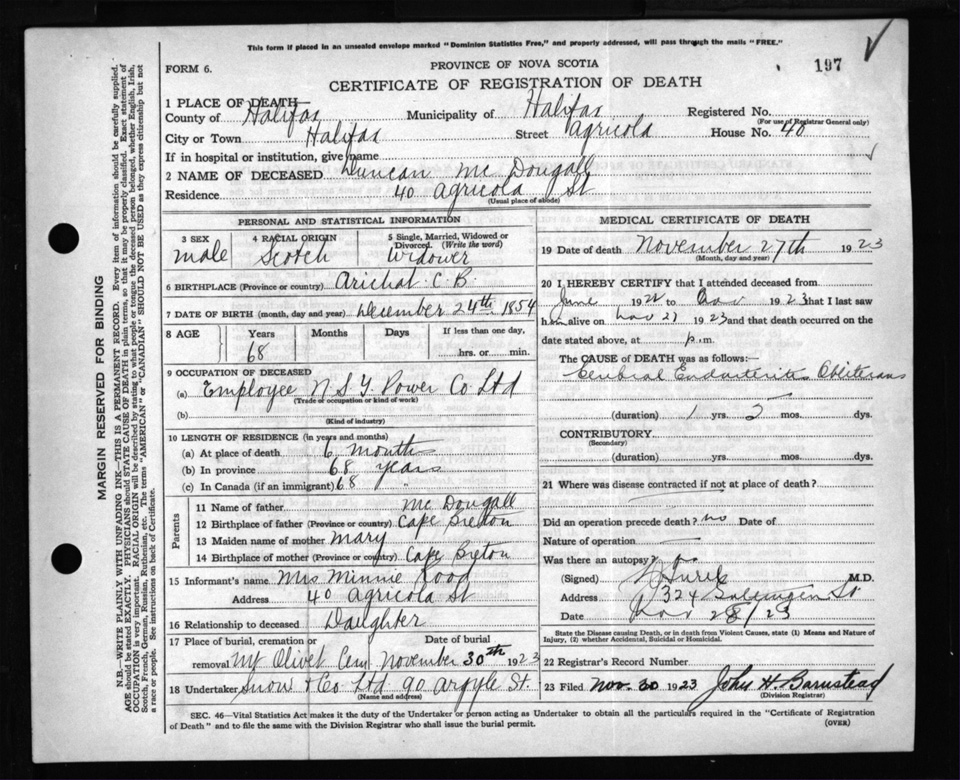 This form if placed in an unsealed envelope marked "Dominion Statistics Free," and properly addressed, will pass through the mails "FREE."
FORM 6.
PROVINCE OF NOVA SCOTIA
197
CERTIFICATE OF REGISTRATION OF DEATH
1 PLACE OF DEATH
County of Halifax Municipality of Halifax Registered No.
(For use of Registrar General only)
City or Town Halifax Street Agricola House No. 40
If in hospital or institution, give name
2 NAME OF DECEASED Duncan Mc Dougall
Residence 40 Agricola St
(Usual place of abode)
PERSONAL AND STATISTICAL INFORMATION
3 SEX 4 RACIAL ORIGIN 5 Single, Married, Widowed or Divorced. (Write the word)
male Scotch Widower
6 BIRTHPLACE (Province or country) Arichat C.B.
7 DATE OF BIRTH (month, day and year) December 24th 1854
8 AGE Years Months Days If less than one day,
68 hrs. or min.
9 OCCUPATION OF DECEASED
(a) Employee N.S.T. Power Co Ltd
(Trade or occupation or kind of work)
(b)
(Kind of industry)
10 LENGTH OF RESIDENCE (in years and months)
(a) At place of death 6 months
(b) In province 68 years
(c) In Canada (if an immigrant) 68 "
Parents
11 Name of father Mc Dougall
12 Birthplace of father (Province or country) Cape Breton
13 Maiden name of mother Mary
14 Birthplace of mother (Province or country) Cape Breton
15 Informant's name Mrs Minnie Rood
Address 40 Agricola St
16 Relationship to deceased Daughter
17 Place of burial, cremation or removal Mt Olivet Cem Date of burial November 30th 1923
18 Undertaker Snow & Co Ltd 90 Argyle St.
(Name and address)
MEDICAL CERTIFICATE OF DEATH
19 Date of death November 27th 1923
(Month, day and year)
20 I HEREBY CERTIFY that I attended deceased from
June 1922 to Nov 1923 that I last saw
him alive on Nov 21 1923 and that death occurred on the
date stated above, at p.m.
The CAUSE OF DEATH was as follows:
Cerebral Endarteritis Obliterans
(duration) 1 yrs. 5 mos. dys.
CONTRIBUTORY
(Secondary)
(duration) yrs. mos. dys.
21 Where was disease contracted if not at place of death?
Did an operation precede death? no Date of
Nature of operation
Was there an autopsy? no
(Signed) M.D.
Address 324 St.
Date Nov 28/23
State the Disease causing Death, or in death from Violent Causes, state (1) Means and Nature of
Injury, (2) whether Accidental, Suicidal or Homicidal.
22 Registrar's Record Number
23 Filed Nov. 30 1923 John H. Barnstead
(Division Registrar)
SEC. 46—Vital Statistics Act makes it the duty of the Undertaker or person acting as Undertaker to obtain all the particulars required in the "Certificate of Registration
of Death" and to file the same with the Division Registrar who shall issue the burial permit.
(OVER)
MARGIN RESERVED FOR BINDING
N.B.—WRITE PLAINLY WITH UNFADING INK—THIS IS A PERMANENT RECORD. Every item of information should be carefully supplied.
AGE should be stated EXACTLY. PHYSICIANS should STATE CAUSE OF DEATH in plain terms, so that it may be properly classified. Exact statement of
OCCUPATION is very important. RACIAL ORIGIN will be described by stating to what people or tongue the deceased person belonged, whether English, Irish,
Scotch, French, German, Russian, Ruthenian, etc. The terms "AMERICAN" or "CANADIAN" SHOULD NOT BE USED as they express citizenship but not
a race or people. See instructions on back of Certificate.